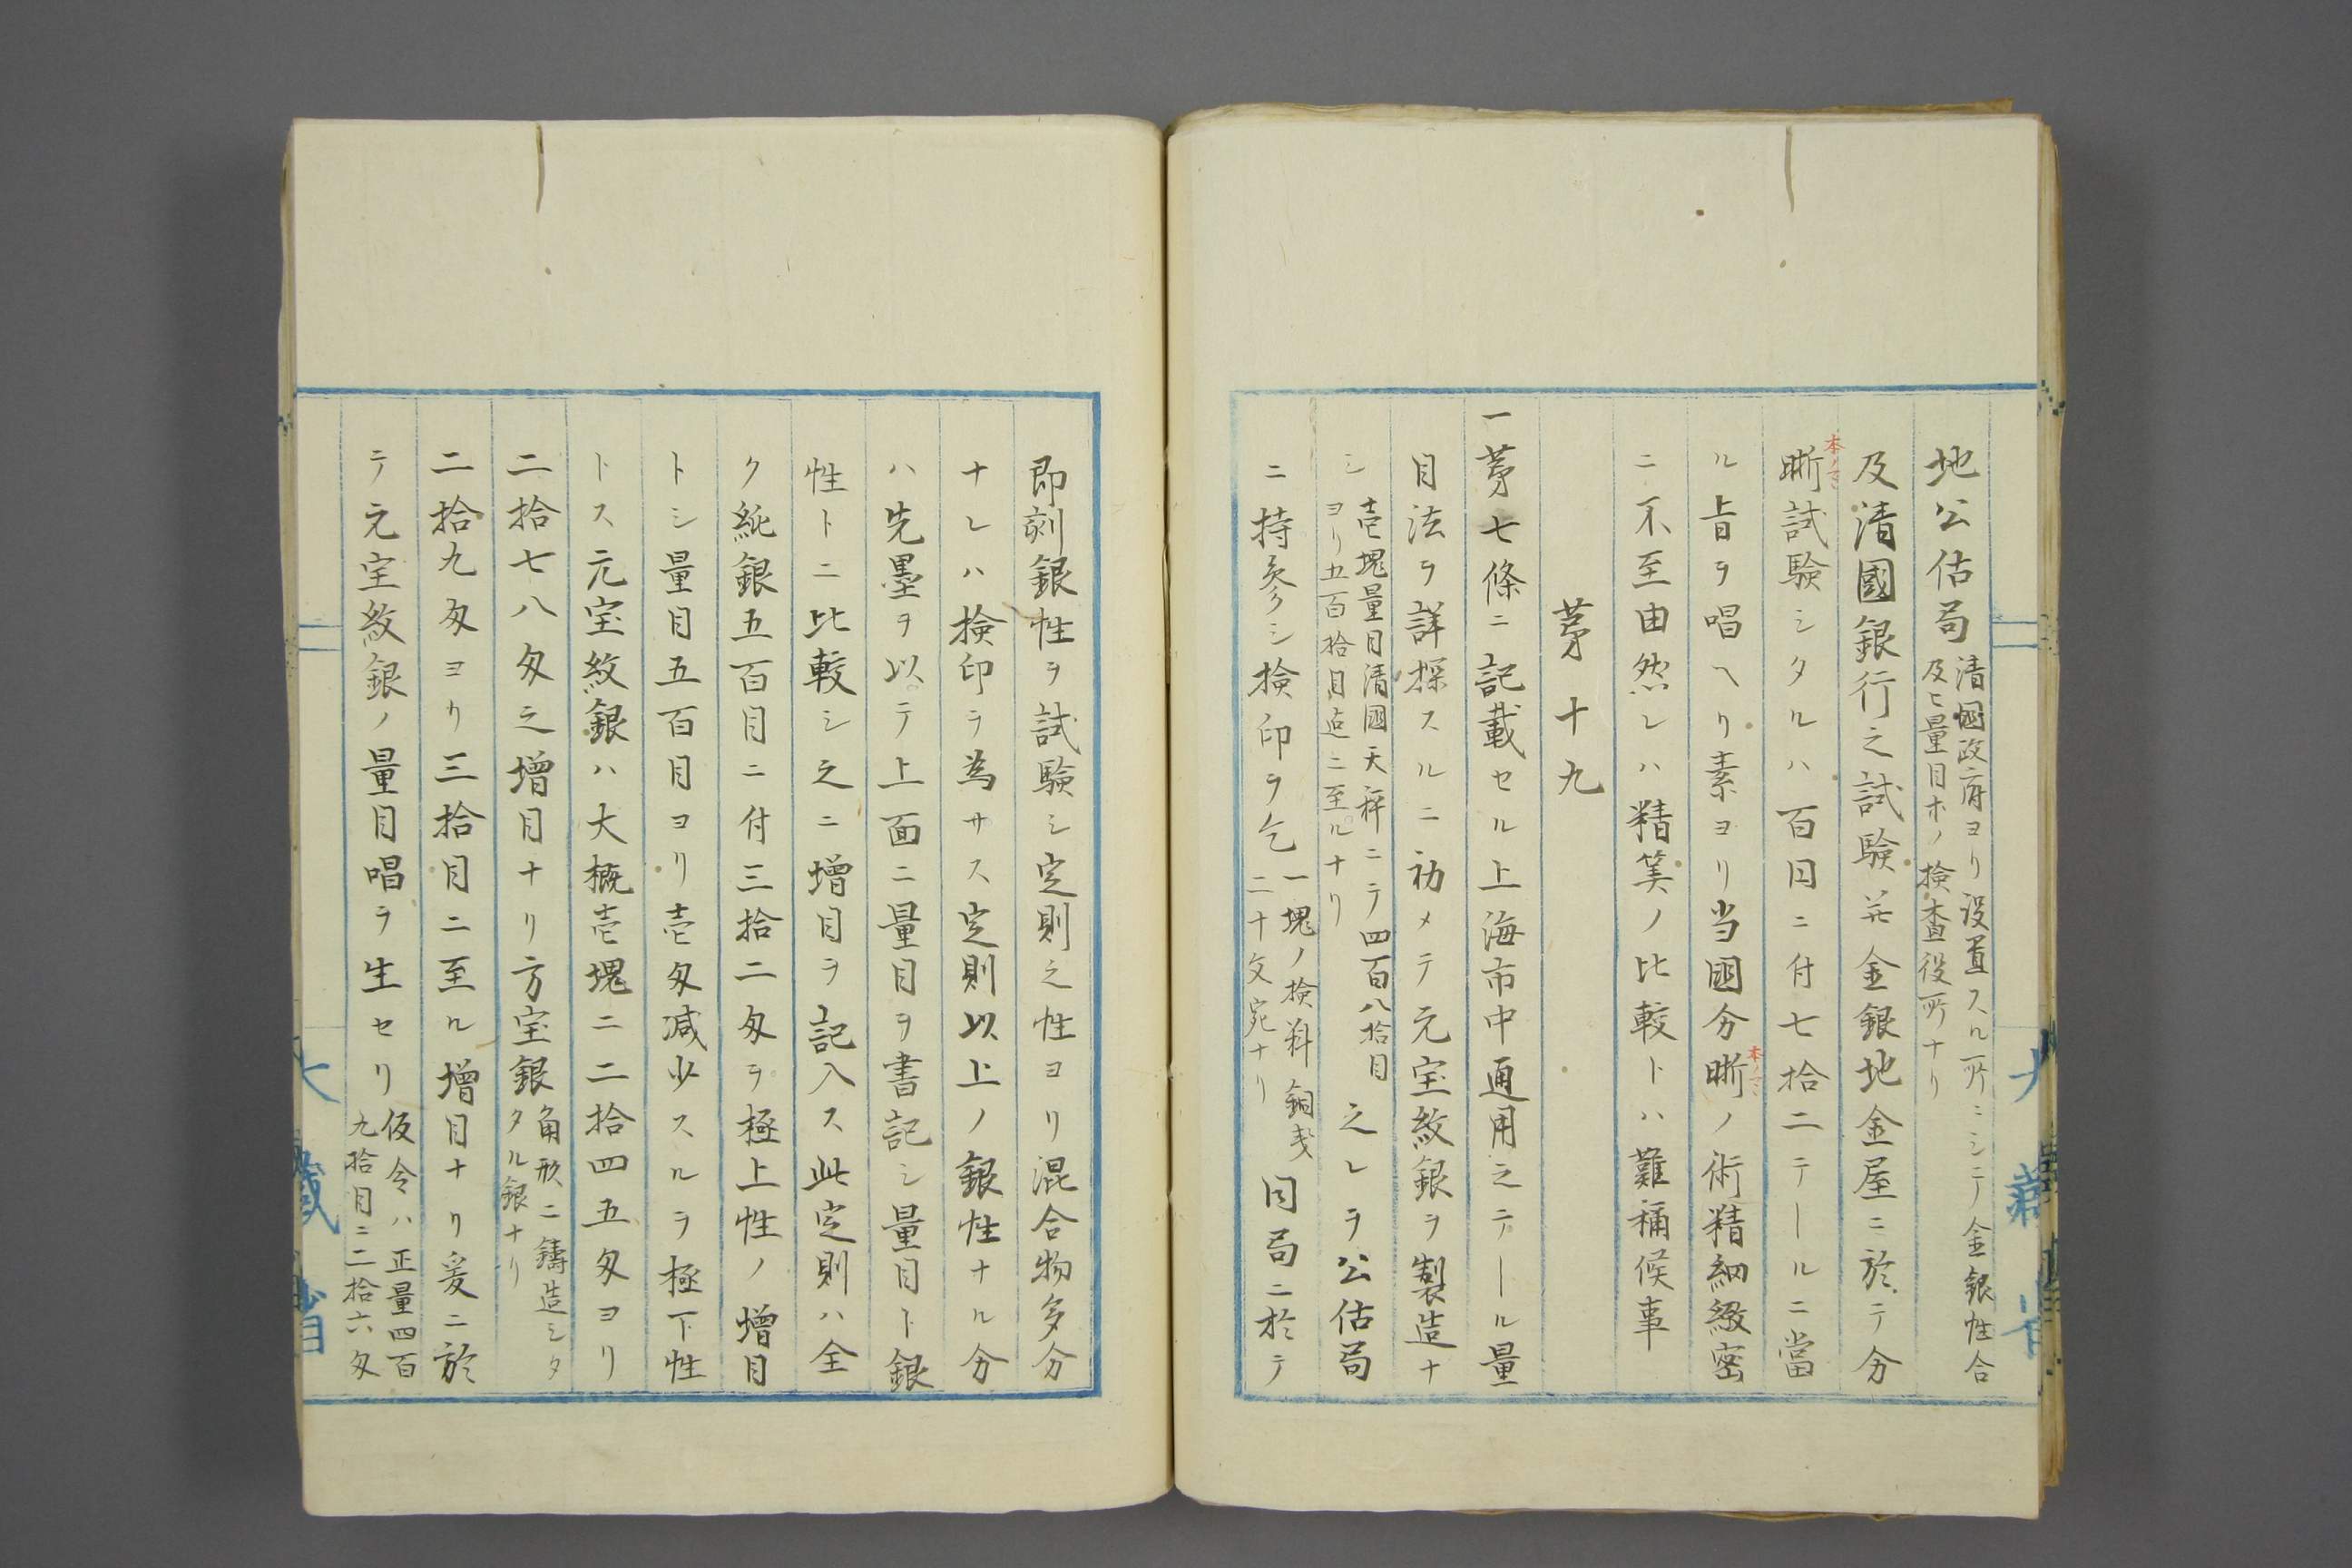 地公估局清國政府ヨリ設置スル所ニシテ金銀性合
及ヒ量目ホノ検査役所ナリ
及清國銀行之試験並金銀地金屋ニ於テ分
晰試験シタルハ百円ニ付七拾二テールニ當
本ノマヽ
ル旨ヲ唱ヘリ素ヨリ当國分晰ノ術精細緻密
本ノマヽ
ニ不至由然レハ精筭ノ比較トハ難稱候事
苐十九
一苐七條ニ記載セル上海市中通用之テール量
目法ヲ詳探スルニ初メテ元宝紋銀ヲ製造ナ
シ壱塊量目清國天秤ニテ四百八拾目
ヨリ五百拾目迄ニ至ルナリ之レヲ公估局
ニ持參シ検印ヲ乞一塊ノ検料銅銭
二十文宛ナリ同局ニ於テ
即刻銀性ヲ試験シ定則之性ヨリ混合物多分
ナレハ検印ヲ為サス定則以上ノ銀性ナル分
ハ先墨ヲ以テ上面ニ量目ヲ書記シ量目ト銀
性トニ比較シ之ニ增目ヲ記入ス此定則ハ全
ク純銀五百目ニ付三拾二匁ヲ極上性ノ增目
トシ量目五百目ヨリ壱匁減少スルヲ極下性
トス元宝紋銀ハ大概壱塊ニ二拾四五匁ヨリ
二拾七八匁之增目ナリ方宝銀角形ニ鑄造シタ
タル銀ナリ
二拾九匁ヨリ三拾目ニ至ル增目ナリ爰ニ於
テ元宝紋銀ノ量目唱ヲ生セリ仮令ハ正量四百
九拾目ニ二拾六匁
大藏省
大藏省